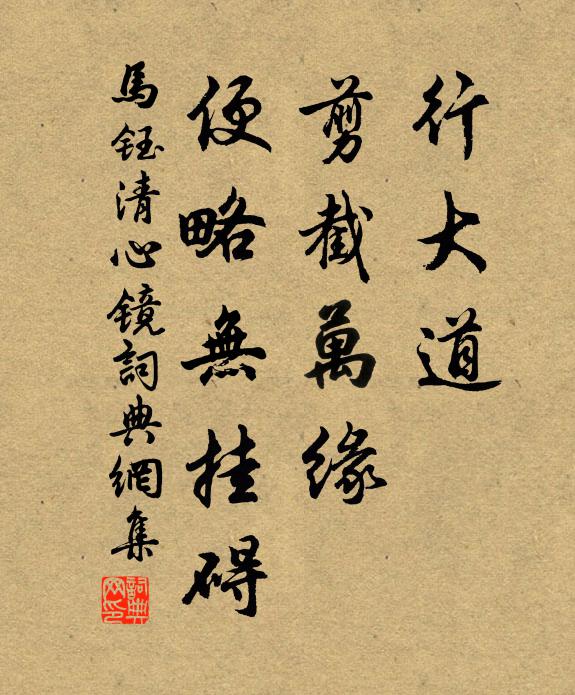 行大道
剪截萬緣
便略無挂碍
馬鈺清心镜詞典網集
詞典
网印